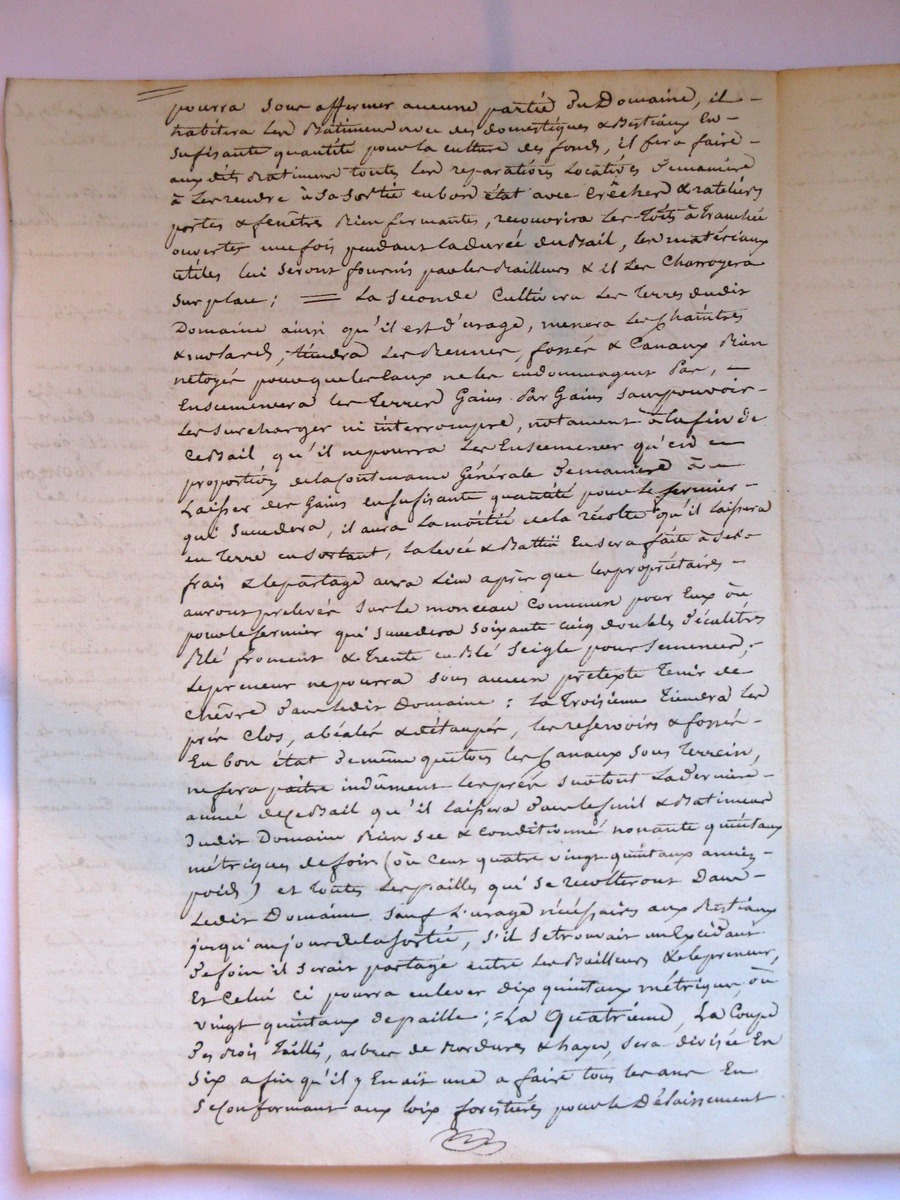 pourra sous affermer aucune partie du Domaine, il -
habitera les Batimens avec des domestiques & Bestiaux En -
sufisante quantité pour la culture des fonds, il fera faire -
aux dits Batimens toutes les reparations Locatives de maniere
à Les rendre à Sa Sortie en bon état avec Crêches & rateliers
portes & fenêtres Bien fermantes, recouvrira les Toits à Tranchée
ouvertes une fois pendant la durée du Bail, les matériaux
utiles lui seront fournis par les Bailleurs & il Les Charroyera
Sur place ; = La Seconde Cultivera Les Terres dudit
Domaine ainsi qu'il est d'usage, menera les Chaintres
& molards, tiendra Les Bennes, fossés & Canaux Bien
netoyés pour que les Eaux ne les endommagent Pas, -
Ensemencera les Terres Gains Par Gains Sans pouvoir -
Les Surcharger ni interrompre, notament à la fin de
Ce Bail qu'il ne pourra Les Ensemencer qu'en -
proportion de la Contenance Générale de maniere à -
Laisser des Gains en sufisante quantité pour le fermier -
qui Succedera, il aura La moitié de la récolte qu'il laissera
en Terre en Sortant, la levée & Battü En sera faite à Ses -
frais & le partage aura Lieu après que les propriétaires -
auront prelevés Sur Le monceau Commun pour Eux ou
pour le fermier qui Succedera Soixante cinq doubles Décalitres
Blé froment & Trente en Blé Seigle pour Semences, -
Le preneur ne pourra Sous aucun pretexte Tenir de
Chêvre dans Ledit Domaine : La Troisieme Tiendra les
prés Clos, & détaupés, les reservoirs & fossés -
En bon état de même que tous les Canaux Sous Terrein,
ne fera paître indûment les prés Surtout La Derniere -
année de Ce Bail qu'il laissera dans les fenil & Batimens
dudit Domaine Bien Sec & Conditionné nonante quintaux
métriques de foin (ou Cent quatre vingt quintaux anciens -
poids) et toutes Les pailles qui Se recolteront Dans -
Ledit Domaine Sauf L'usage nécessaires aux Bestiaux
jusqu'au jour de la Sortie, S'il Se trouvait un Excédant
De foin il Serait partagé entre Les Bailleurs & le preneur,
Et Celui Ci pourra enlever dix quintaux métriques ou
vingt quintaux de paille ; = La Quatrième, La Coupe
Des Bois Taillis, arbres de Bordures & hayes, Sera divisée En
Six afin qu'il y En ait une a faire tous les ans En
Se Conformant aux loix forestieres pour le Délaissement